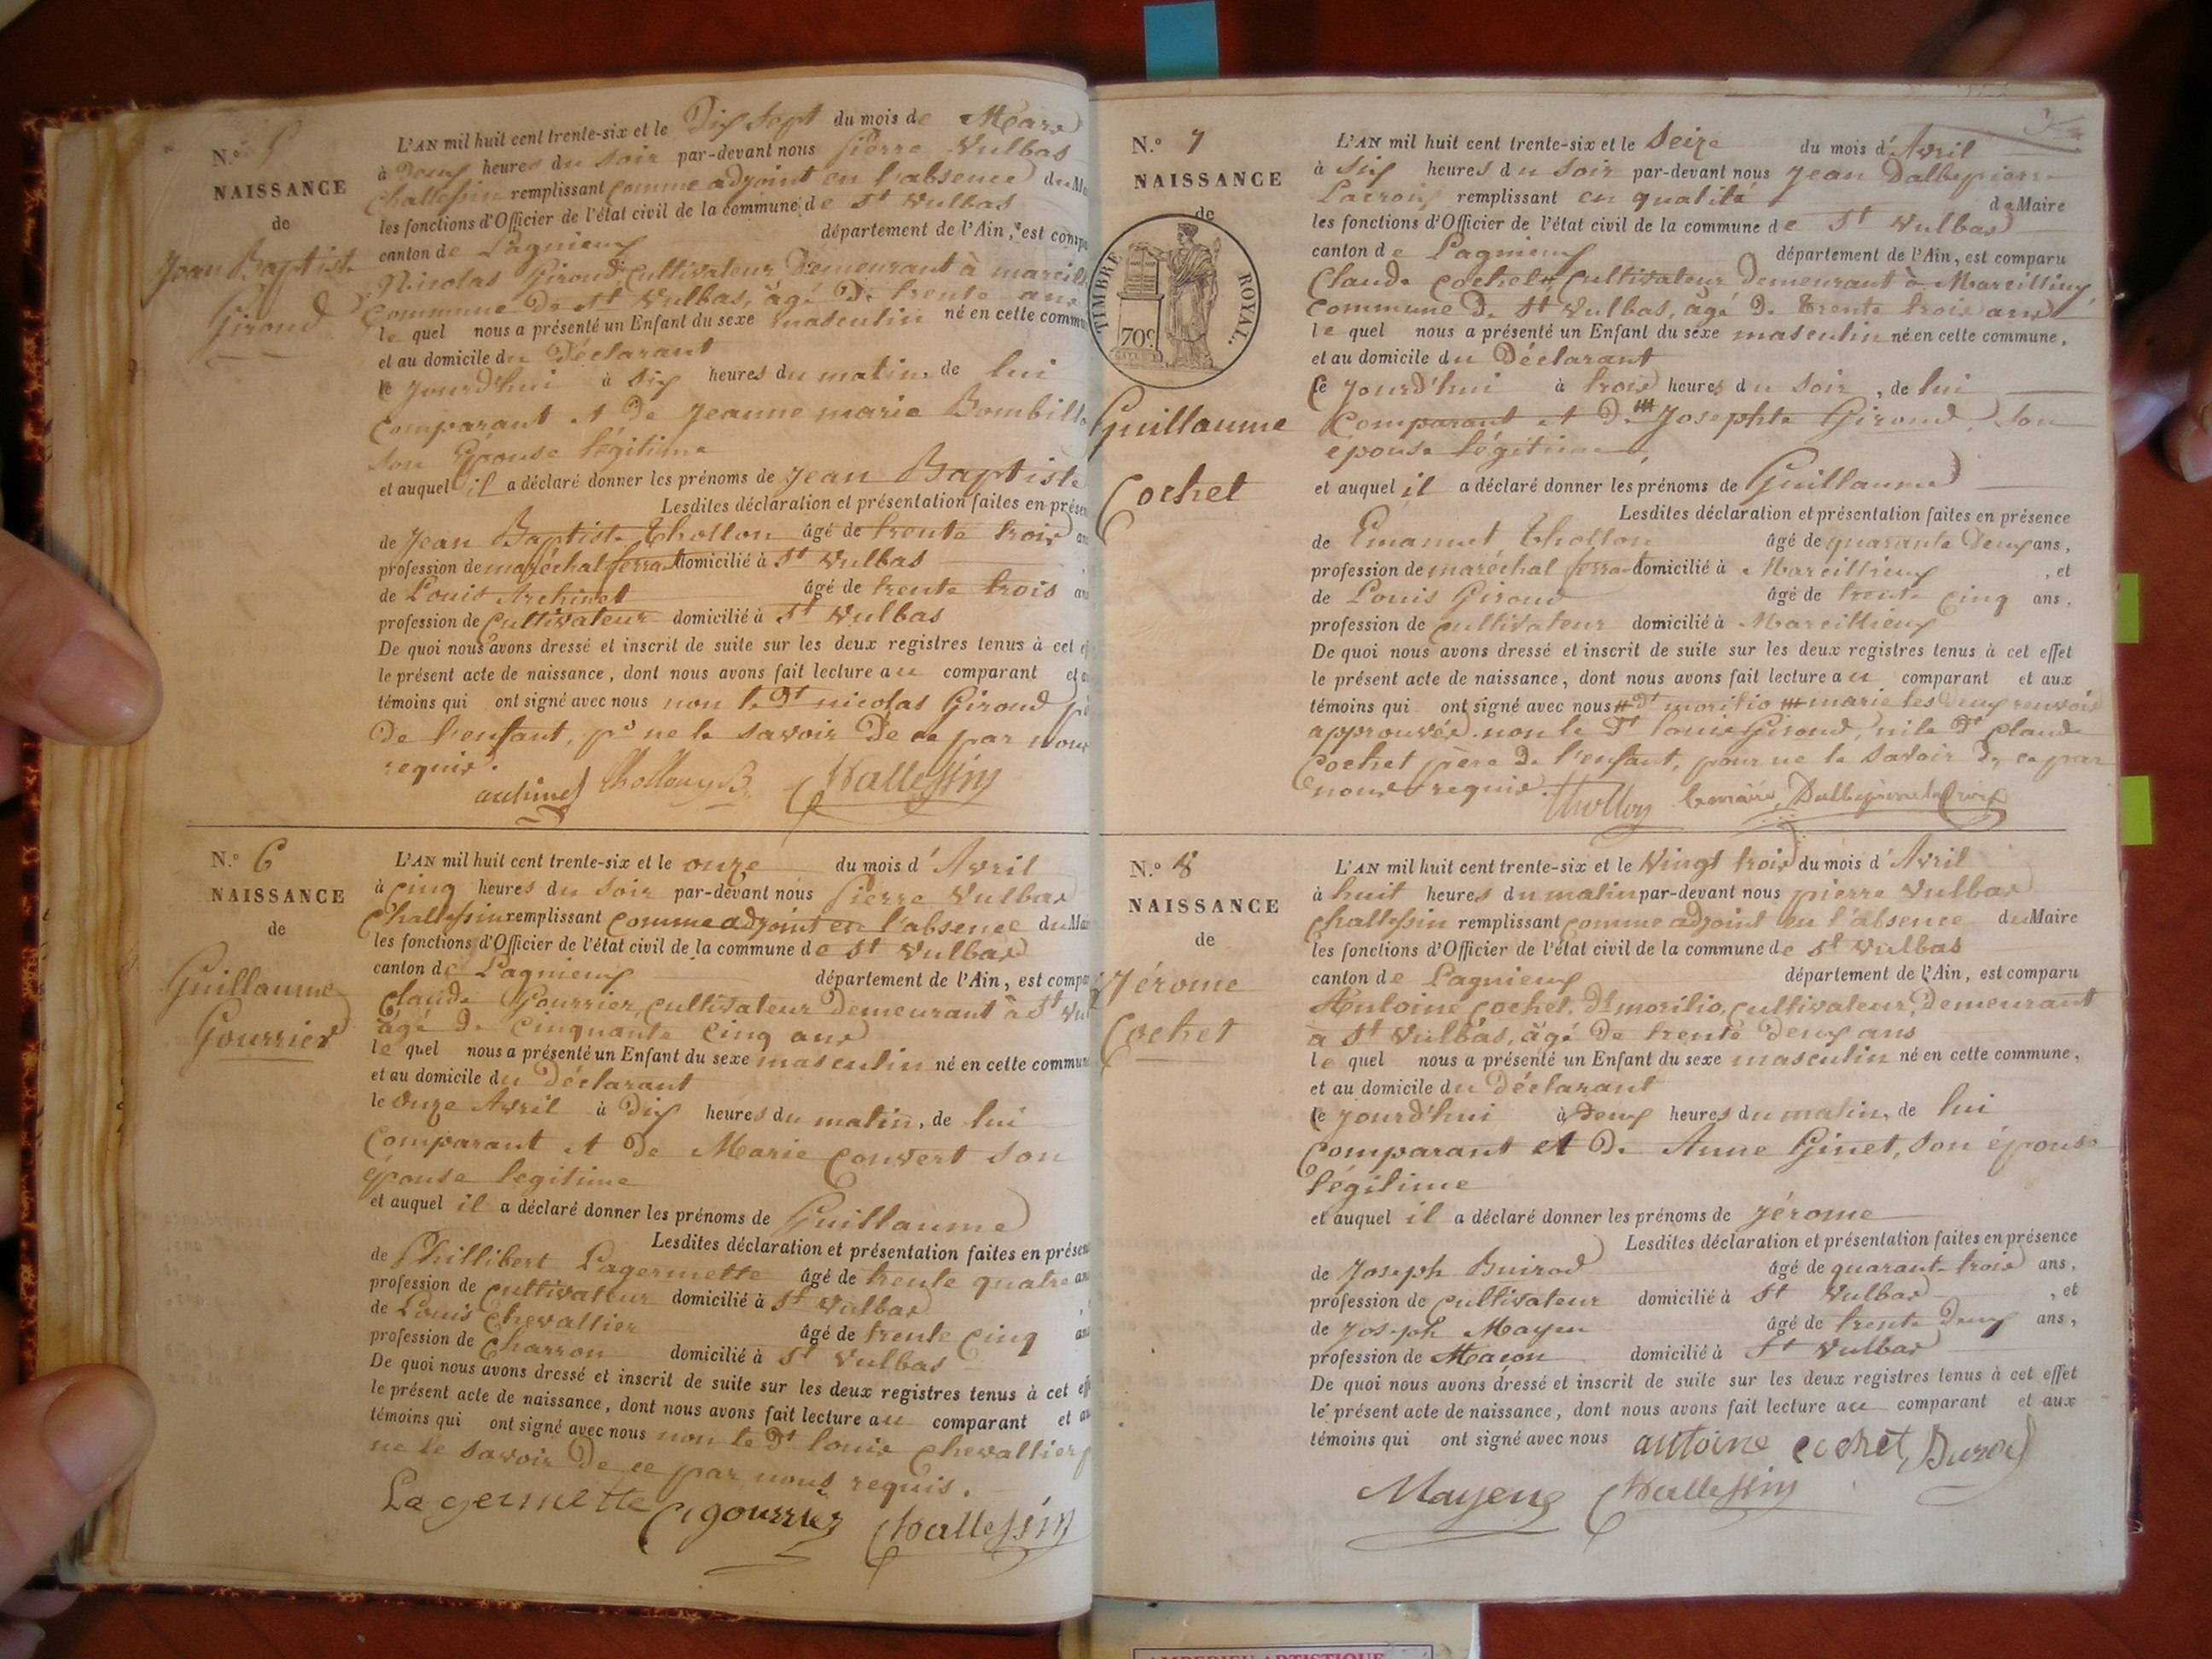 N.º 5
NAISSANCE
de
Jean Baptiste
Giroud
L'AN mil huit cent trente-six et le Dix Sept du mois de Mars
à Deux heures du soir par-devant nous Pierre Vulbas
Challessin remplissant comme adjoint en l'absence du
les fonctions d'Officier de l'état civil de la commune de St Vulbas
canton de Lagnieux département de l'Ain, est
Nicolas Giroud Cultivateur Demeurant à
commune De St Vulbas, âgé De trente ans
le quel nous a présenté un Enfant du sexe masculin né en cette
et au domicile du Déclarant
le jourd'hui à six heures du matin, de lui
comparant et De Jeanne marie
son Epouse légitime
et auquel il a déclaré donner les prénoms de Jean Baptiste
Lesdites déclaration et présentation faites en
de Jean Baptiste Thollon âgé de trente trois
profession de maréchal ferrant domicilié à St Vulbas
de Louis Archinet âgé de trente trois
profession de Cultivateur domicilié à St Vulbas
De quoi nous avons dressé et inscrit de suite sur les deux registres tenus à cet
le présent acte de naissance, dont nous avons fait lecture au comparant
témoins qui ont signé avec nous non le dt nicolas Giroud
De l'enfant, pr ne le savoir De ce par nous
requis.
Challessin
N.º 6
NAISSANCE
de
Guillaume
Gourrier
L'AN mil huit cent trente-six et le onze du mois d'Avril
à cinq heures du soir par-devant nous Pierre Vulbas
Challessin remplissant comme adjoint en l'absence du
les fonctions d'Officier de l'état civil de la commune de St Vulbas
canton de Lagnieux département de l'Ain, est
Claude Gourrier, cultivateur demeurant à St
âgé De cinquante cinq ans
le quel nous a présenté un Enfant du sexe masculin né en cette
et au domicile du Déclarant
le onze Avril à Dix heures du matin, de lui
comparant et De Marie Convert son
épouse legitime
et auquel il a déclaré donner les prénoms de Guillaume
Lesdites déclaration et présentation faites en
de Phillibert Lagermette âgé de trente quatre
profession de cultivateur domicilié à St Vulbas
de Louis Chevallier âgé de trente cinq
profession de Charron domicilié à St Vulbas
De quoi nous avons dressé et inscrit de suite sur les deux registres tenus à cet
le présent acte de naissance, dont nous avons fait lecture au comparant et
témoins qui ont signé avec nous non le dt louis chevallier
ne le savoir De ce par nous requis.
Lagermette Cgourrier Challessin
N.º 7
NAISSANCE
de
TIMBRE ROYAL.
70c
Guillaume
Cochet
L'AN mil huit cent trente-six et le Seize du mois d'Avril
à six heures du soir par-devant nous Jean Dalbepierre
Lacroix remplissant en qualité de Maire
les fonctions d'Officier de l'état civil de la commune de St Vulbas
canton de Lagnieux département de l'Ain, est comparu
Claude Cochet # cultivateur Demeurant à Marcillieux
commune De St Vulbas, âgé De trente trois ans
le quel nous a présenté un Enfant du sexe masculin né en cette commune,
et au domicile du Déclarant
le jourd'hui à trois heures du soir, de lui
comparant et De Josephte Giroud, son
épouse légitime
et auquel il a déclaré donner les prénoms de Guillaume
Lesdites déclaration et présentation faites en présence
de Emanuel Thollon âgé de quarante Deux ans,
profession de maréchal ferrant domicilié à Marcillieux, et
de Louis Giroud âgé de trente cinq ans,
profession de cultivateur domicilié à Marcillieux
De quoi nous avons dressé et inscrit de suite sur les deux registres tenus à cet effet
le présent acte de naissance, dont nous avons fait lecture au comparant et aux
témoins qui ont signé avec nous # dt morilio marie les Deux renvois
approuvés. non le dt louis Giroud, ni le dt Claude
Cochet père De l'enfant, pour ne le savoir De ce par
nous requis. Thollon le maire, Dalbepierre Lacroix
N.º 8
NAISSANCE
de
Jérome
Cochet
L'AN mil huit cent trente-six et le Vingt trois du mois d'Avril
à huit heures du matin par-devant nous pierre Vulbas
challessin remplissant comme adjoint en l'absence du Maire
les fonctions d'Officier de l'état civil de la commune de St Vulbas
canton de Lagnieux département de l'Ain, est comparu
Antoine Cochet, dt morilio, cultivateur, Demeurant
à St Vulbas, âgé De trente deux ans
le quel nous a présenté un Enfant du sexe masculin né en cette commune,
et au domicile du Déclarant
le jourd'hui à Deux heures du matin, de lui
comparant et De Anne Ginet, son épouse
légitime
et auquel il a déclaré donner les prénoms de Jérome
Lesdites déclaration et présentation faites en présence
de Joseph Buirod âgé de quarante trois ans,
profession de cultivateur domicilié à St Vulbas, et
de Joseph Mayen âgé de trente Deux ans,
profession de Maçon domicilié à St Vulbas
De quoi nous avons dressé et inscrit de suite sur les deux registres tenus à cet effet
le présent acte de naissance, dont nous avons fait lecture au comparant et aux
témoins qui ont signé avec nous antoine cochet,
Mayen Challessin